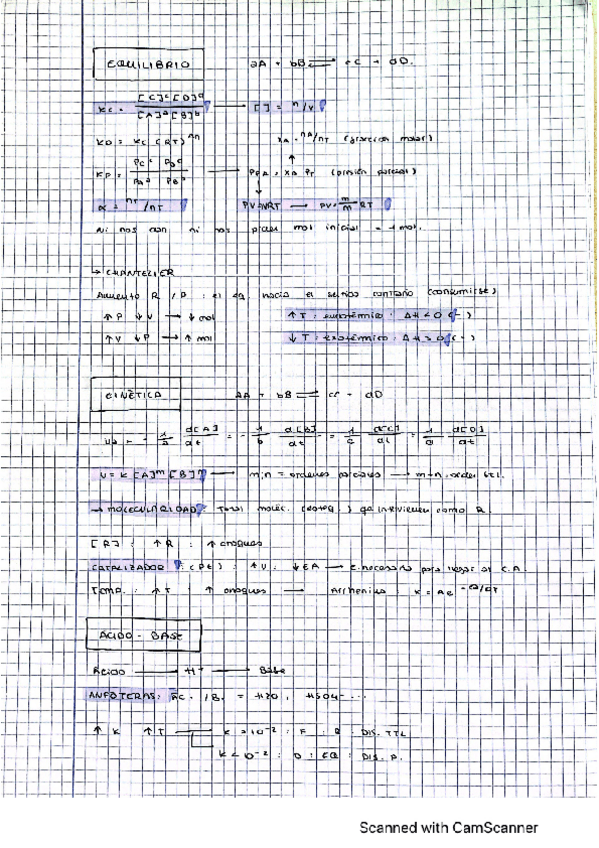 EQUILIBRIO aA + bB ⇌ cC + dD.
Kc = [C]ᶜ[D]ᵈ / [A]ᵃ[B]ᵇ → [ ] = n/V
KP = Kc (RT)^Δn XA = nA/nT (fracción molar)
KP = Pcᶜ PDᵈ / PAᵃ PBᵇ → PPA = XA PT (presión parcial)
α = nr/nT PV=nRT → PV = m/M RT
ni nos dan, ni nos piden mol inicial = 1 mol.
→ CHANTELIER
Aumento R / P : el eq. hacia el sentido contrario (consumirse)
↑P ↓V → ↓ mol ↑T : ΔH < 0 (-)
↑V ↓P → ↑ mol ↓T : exotérmico : ΔH > 0
CINÉTICA aA + bB ⇌ cC + dD
v = - 1/a d[A]/dt = - 1/b d[B]/dt = 1/c d[C]/dt = 1/d d[D]/dt
v = K [A]ᵐ [B]ⁿ → m,n = ordenes parciales → m+n. orden ttl.
→ MOLECULARIDAD: Total moléc. que intervienen como R.
[R] : ↑R : ↑ choques
CATALIZADOR : ↑v : ↓EA → E. necesaria para llegar al C.A.
TEMP. : ↑T : ↑ choques → Arrhenius : K = Ae
ÁCIDO - BASE
Ácido → H⁺ → Base
ANFÓTERAS: Ác. / B. = H2O, HSO4-...
↑K ↑T K > 10⁻² : F : DIS. TTL
K < 10⁻² : D : EQ : DIS. P.
Scanned with CamScanner